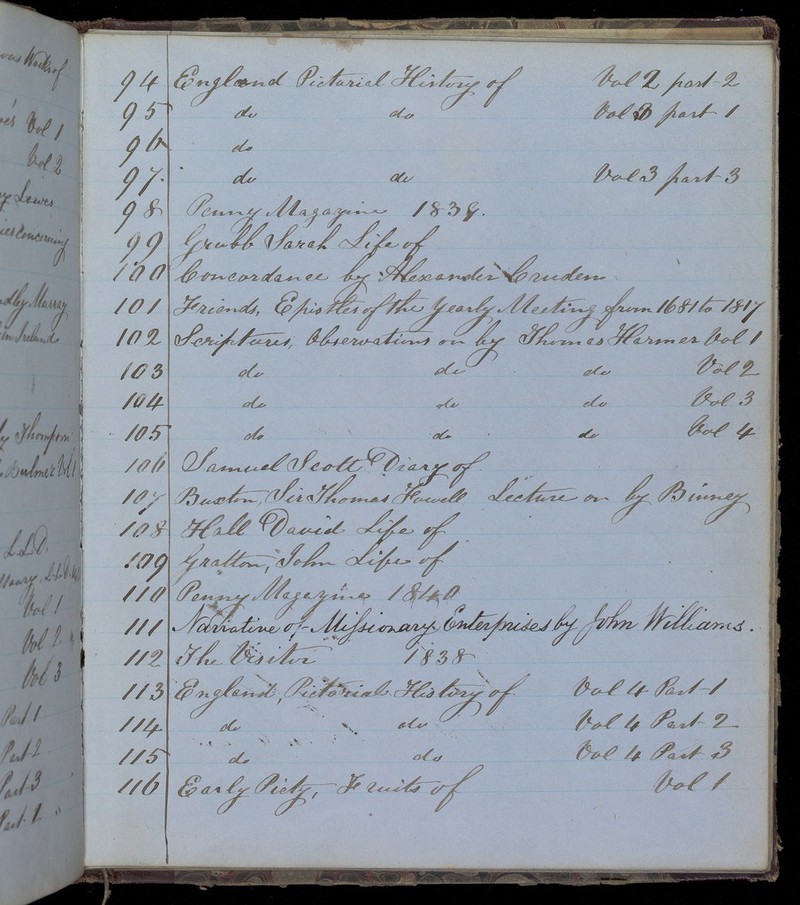 was Works of
Vol 1
Vol 2
Lewis
concerning
Murray
in Ireland
by Thompson
Bulmer Vol 1
L.L.D.
Vol 1
Vol 2
Vol 3
Part 1
Part 2
Part 3
Part 1 "
94 England Pictorial History of Vol 2 part 2
95 do do Vol 3 part 1
96 do
97 do do Vol 3 part 3
98 Penny Magazine 1838.
99 Grubb Sarah Life of
100 Concordance by Alexander Cruden
101 Friends, Epistles of the Yearly Meeting from 1681 to 1817
102 Scriptures, Observations on by Thomas Harmer Vol 1
103 do do do Vol 2
104 do do do Vol 3
105 do do do Vol 4
106 Samuel Scott Diary of
107 Buxton, Sir Thomas Fowell Lecture on by Binney
108 Hall David Life of
109 Gratton, John Life of
110 Penny Magazine 1840
111 Narrative of Missionary Enterprises by John Williams.
112 The Visitor 1838
113 England, Pictorial History of Vol 4 Part 1
114 do do Vol 4 Part 2
115 do do Vol 4 Part 3
116 Early Piety, Fruits of Vol 1